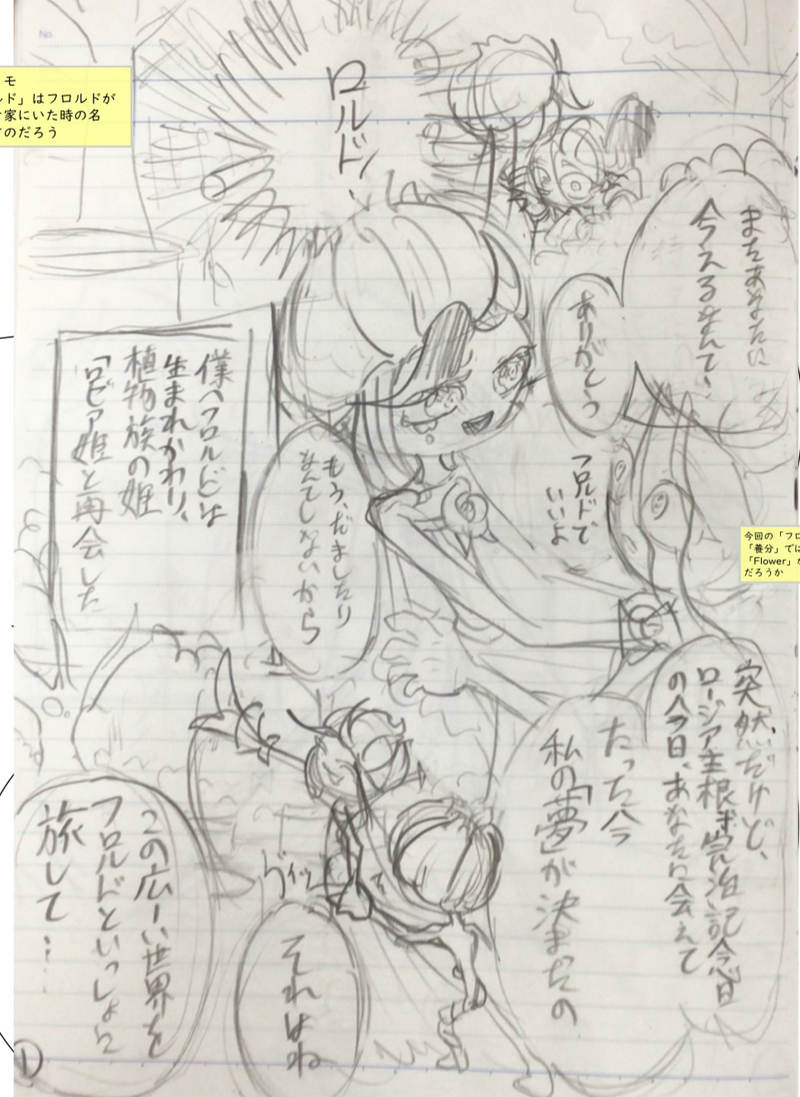 No.
モ
ルド」はフロルドが
家にいた時の名
のだろう
ロルド、
またあなたに
今えるなんて、
ありがとう
フロルドで
いいよ
もう、だましたり
なんてしないから
僕(フロルド)は
生まれかわり、
植物族の姫
「ロビア姫」と再会した
今回の「フロ
「養分」では
「Flower」が
だろうか
突然だけど、
の今日、あなたに会えて
たった今
私の「夢」が決まったの
グイッ
それはね
この広ーい世界を
フロルドといっしょに
旅して……
1